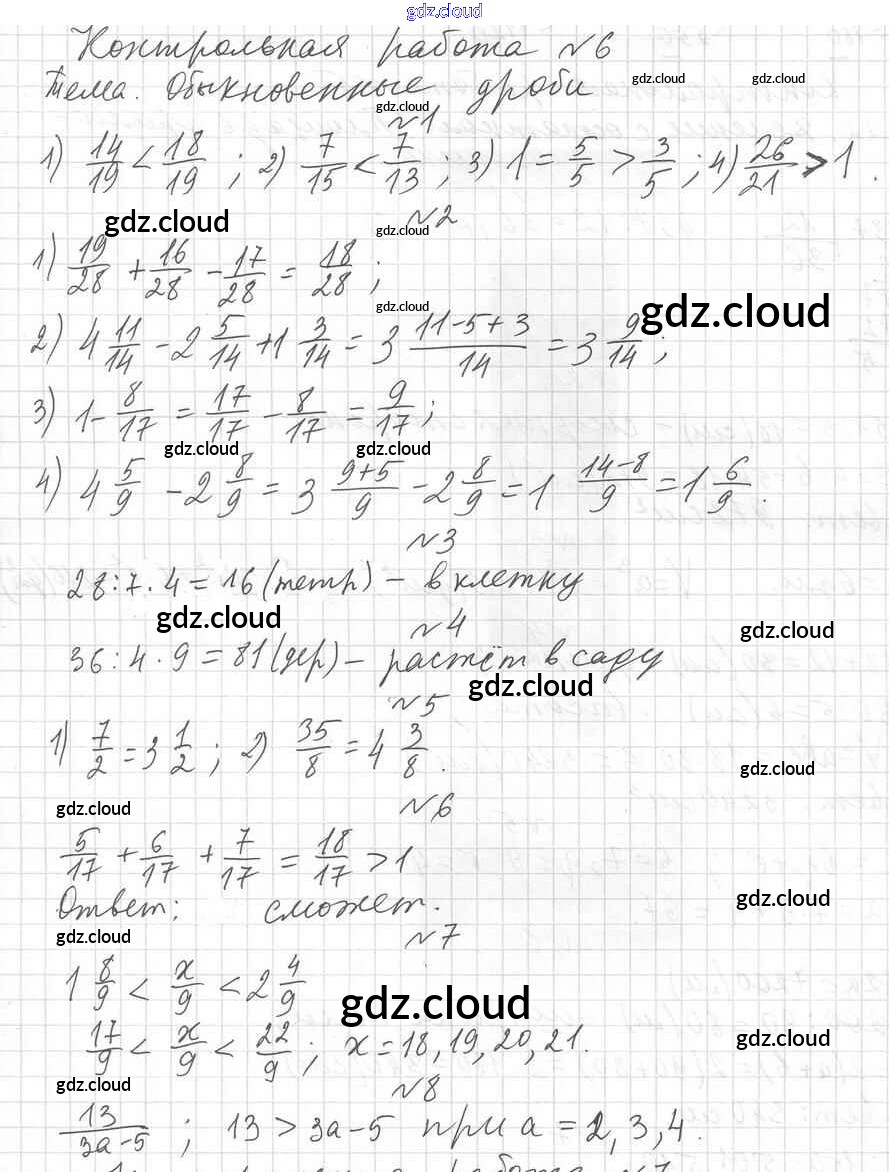 gdz.cloud
Контрольная работа №6
Тема. Обыкновенные дроби
gdz.cloud gdz.cloud
gdz.cloud
№1
1) 14/19 < 18/19 ; 2) 7/15 < 7/13 ; 3) 1 = 5/5 > 3/5 ; 4) 26/21 > 1 .
gdz.cloud №2 gdz.cloud
1) 19/28 + 16/28 - 17/28 = 18/28 ;
gdz.cloud gdz.cloud
2) 4 11/14 - 2 5/14 + 1 3/14 = 3 (11-5+3)/14 = 3 9/14 ;
3) 1 - 8/17 = 17/17 - 8/17 = 9/17 ;
gdz.cloud gdz.cloud
4) 4 5/9 - 2 8/9 = 3 (9+5)/9 - 2 8/9 = 1 (14-8)/9 = 1 6/9 .
№3
28 : 7 · 4 = 16 (тетр) – в клетку
gdz.cloud №4 gdz.cloud
36 : 4 · 9 = 81 (дер) – растёт в саду
gdz.cloud
№5
1) 7/2 = 3 1/2 ; 2) 35/8 = 4 3/8 .
gdz.cloud
gdz.cloud №6
5/17 + 6/17 + 7/17 = 18/17 > 1
gdz.cloud
Ответ: сможет.
gdz.cloud №7
1 8/9 < x/9 < 2 4/9
gdz.cloud
17/9 < x/9 < 22/9 ; x = 18, 19, 20, 21.
gdz.cloud
gdz.cloud №8
13/(3a-5) ; 13 > 3a-5 при a = 2, 3, 4.